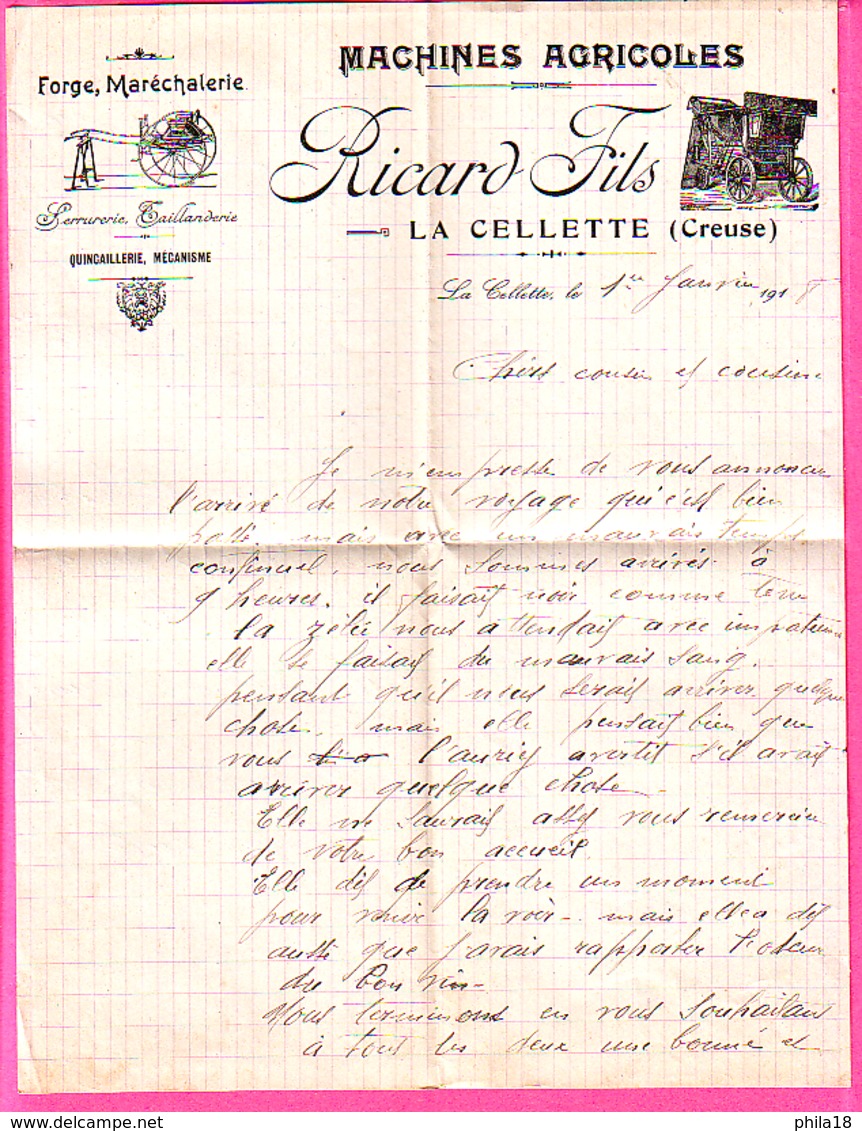 MACHINES AGRICOLES
Forge, Maréchalerie.
Ricard Fils
Serrurerie, Taillanderie
LA CELLETTE (Creuse)
QUINCAILLERIE, MÉCANISME
La Cellette, le 1er Janvier 1918
Chers cousin et cousine
Je m'empresse de vous annoncer
l'arrivé de notre voyage qui c'est bien
passé. mais avec un mauvais temps
continuel, nous sommes arrivés à
9 heures. il faisait noir comme terre
la zélée nous attendait avec impatience
elle se faisait du mauvais sang.
pensant qu'il nous serait arriver quelque
chose, mais elle pensait bien que
vous l'auriez avertit s'il avait
arriver quelque chose
Elle ne saurait assez vous remercier
de votre bon accueil.
Elle dit de prendre un moment
pour venir la voir - mais elle a dit
aussi que j'avais rapporter l'odeur
du bon vin -
Nous terminons en vous souhaitant
à tout les deux une bonne et
phila18